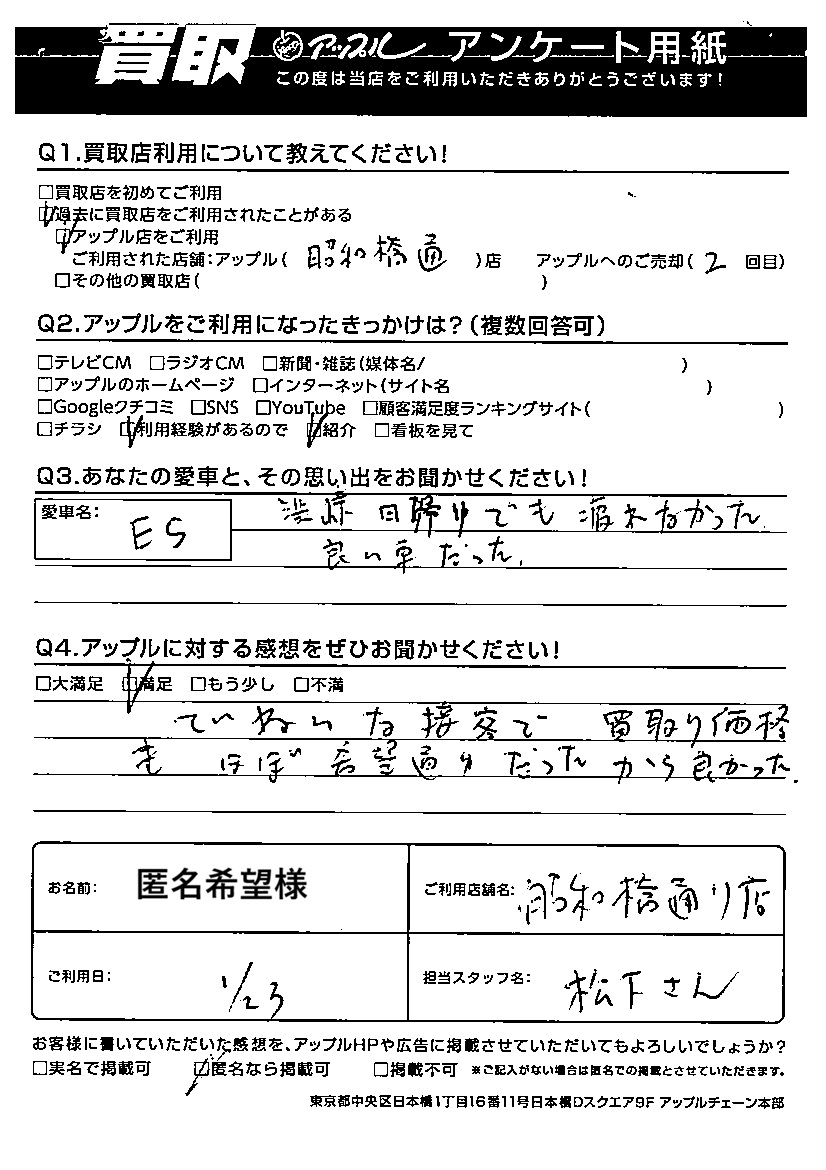 買取 アップル アンケート用紙
この度は当店をご利用いただきありがとうございます!
Q1.買取店利用について教えてください!
□買取店を初めてご利用
☑過去に買取店をご利用されたことがある
☑アップル店をご利用
ご利用された店舗:アップル( 昭和橋通 )店 アップルへのご売却( 2 回目)
□その他の買取店( )
Q2.アップルをご利用になったきっかけは?(複数回答可)
□テレビCM □ラジオCM □新聞・雑誌(媒体名/ )
□アップルのホームページ □インターネット(サイト名 )
□Googleクチコミ □SNS □YouTube □顧客満足度ランキングサイト( )
□チラシ ☑利用経験があるので ☑紹介 □看板を見て
Q3.あなたの愛車と、その思い出をお聞かせください!
愛車名: ES
日帰りでも疲れなかった.
良い車だった.
Q4.アップルに対する感想をぜひお聞かせください!
□大満足 ☑満足 □もう少し □不満
ていねいな接客で 買取り価格
も ほぼ希望通りだったから良かった.
お名前: 匿名希望様 ご利用店舗名: 昭和橋通り店
ご利用日: 1/23 担当スタッフ名: 松下さん
お客様に書いていただいた感想を、アップルHPや広告に掲載させていただいてもよろしいでしょうか?
□実名で掲載可 ☑匿名なら掲載可 □掲載不可 ※ご記入がない場合は匿名での掲載とさせていただきます。
東京都中央区日本橋1丁目16番11号日本橋Dスクエア9F アップルチェーン本部